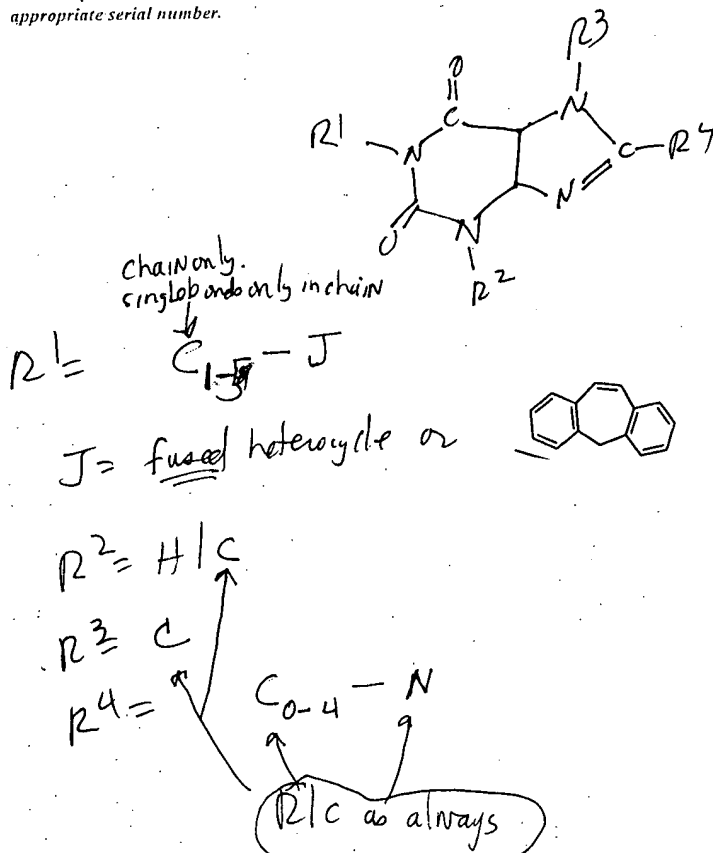 appropriate serial number.
R3
O
||
C
N
R1
N
C
R4
N
O
N
R2
chain only.
single bonds only in chain
R1= C1-5 - J
J= fused heterocycle or
R2= H/C
R3= C
R4= C0-4 - N
R/C as always